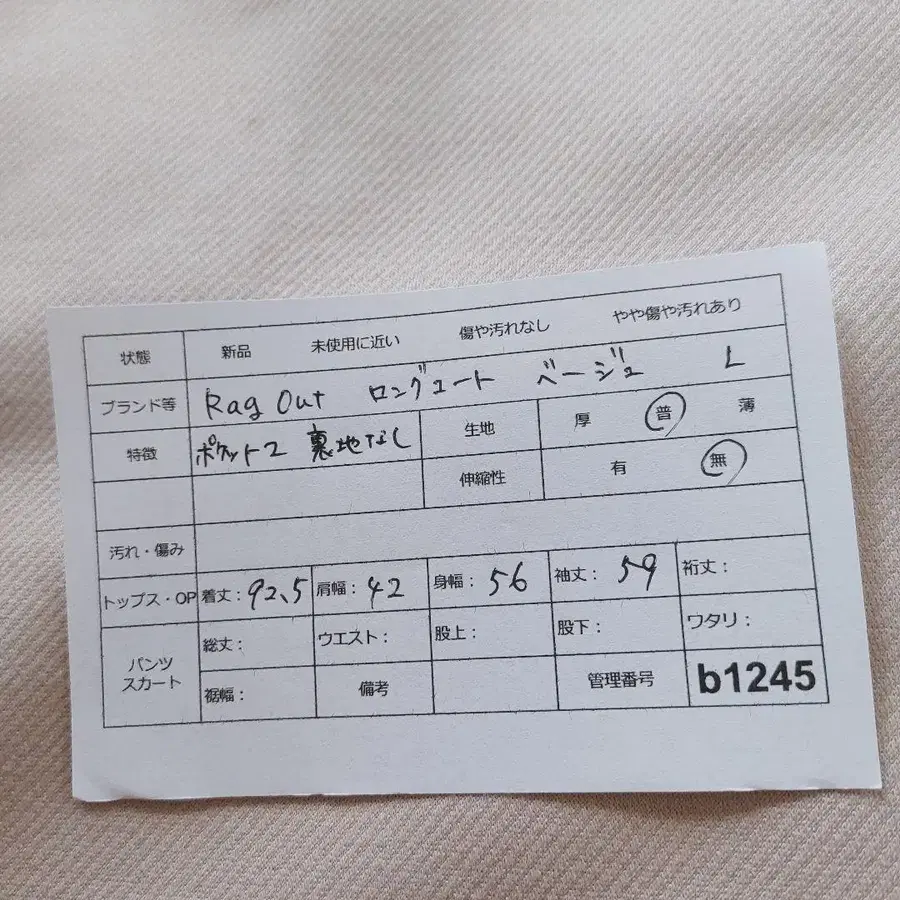 状態 新品 未使用に近い 傷や汚れなし やや傷や汚れあり
ブランド等 Rag Out ロングコート ベージュ L
特徴 ポケット2 裏地なし 生地 厚 普 薄
伸縮性 有 無
汚れ・傷み
トップス・OP 着丈：92.5 肩幅：42 身幅：56 袖丈：59 裄丈：
パンツ スカート 総丈： ウエスト： 股上： 股下： ワタリ：
裾幅： 備考 管理番号 b1245